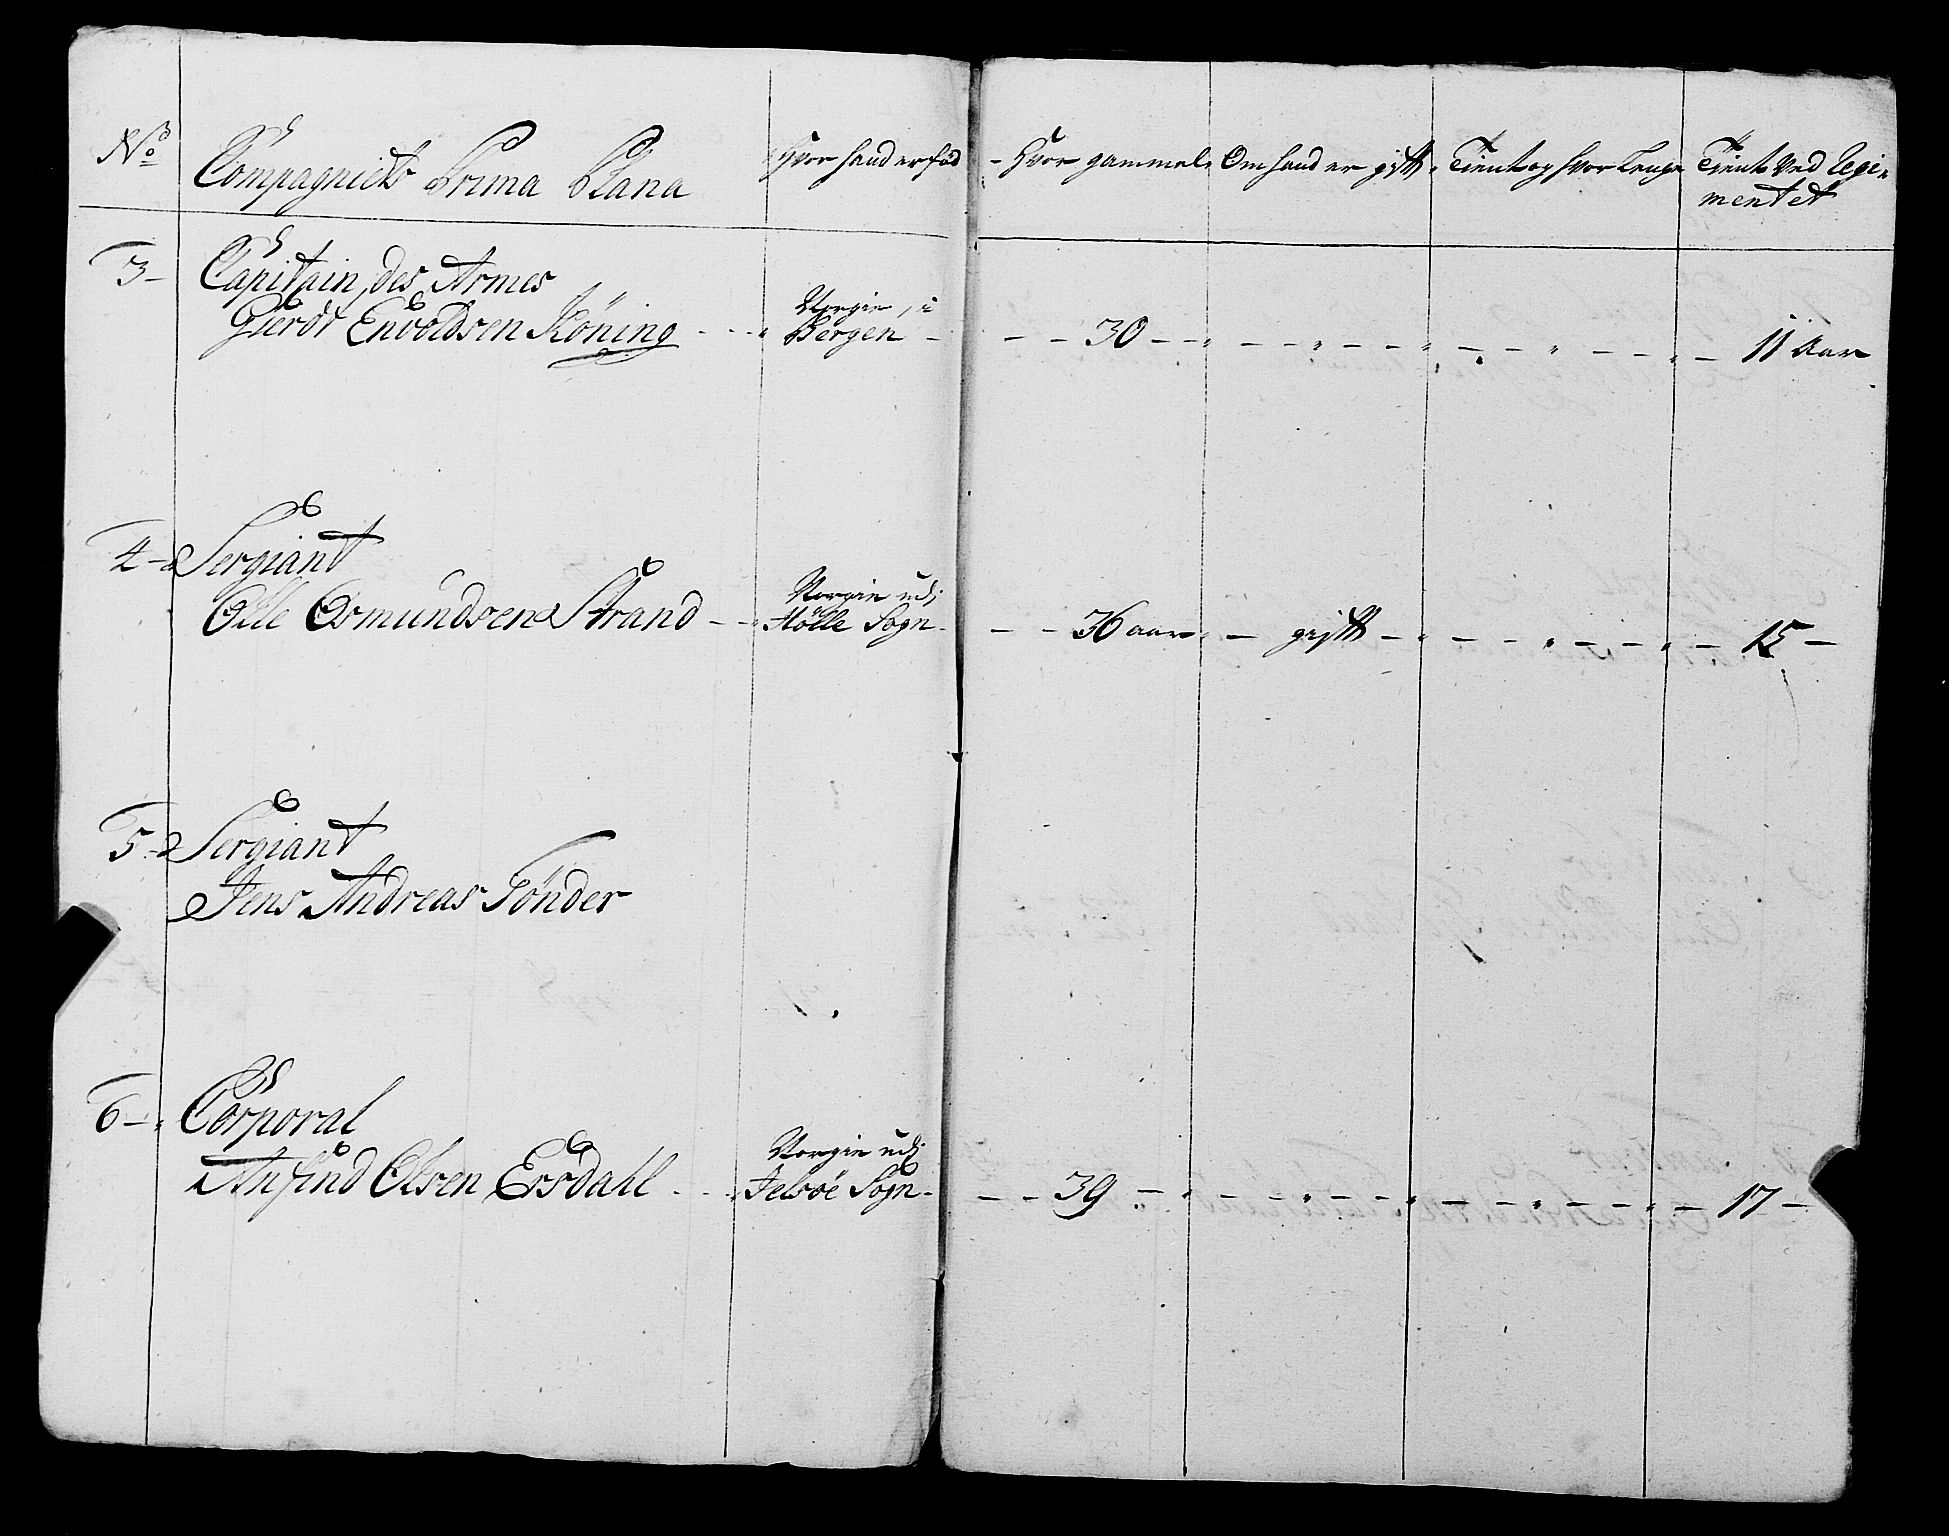 No
Compagniets Prima Plana
Hvor hand er fød
Hvor gammel
Om hand er gift
Tient og hvor Lenge
Tient Ved Regi-
mentet
3 Capitain des Armes
Gierdt Envoldsen Köning
Norgie, i
Bergen
30
11 Aar
4 Sergiant
Olle Osmundsen Strand
Norgie udi
Hölle Sogn
36 aar
gift
15
5 Sergiant
Jens Andreas Tönder
6 Corporal
Anfind Olsen Ersdall
Norgie udi
Jelsöe Sogn
39
17